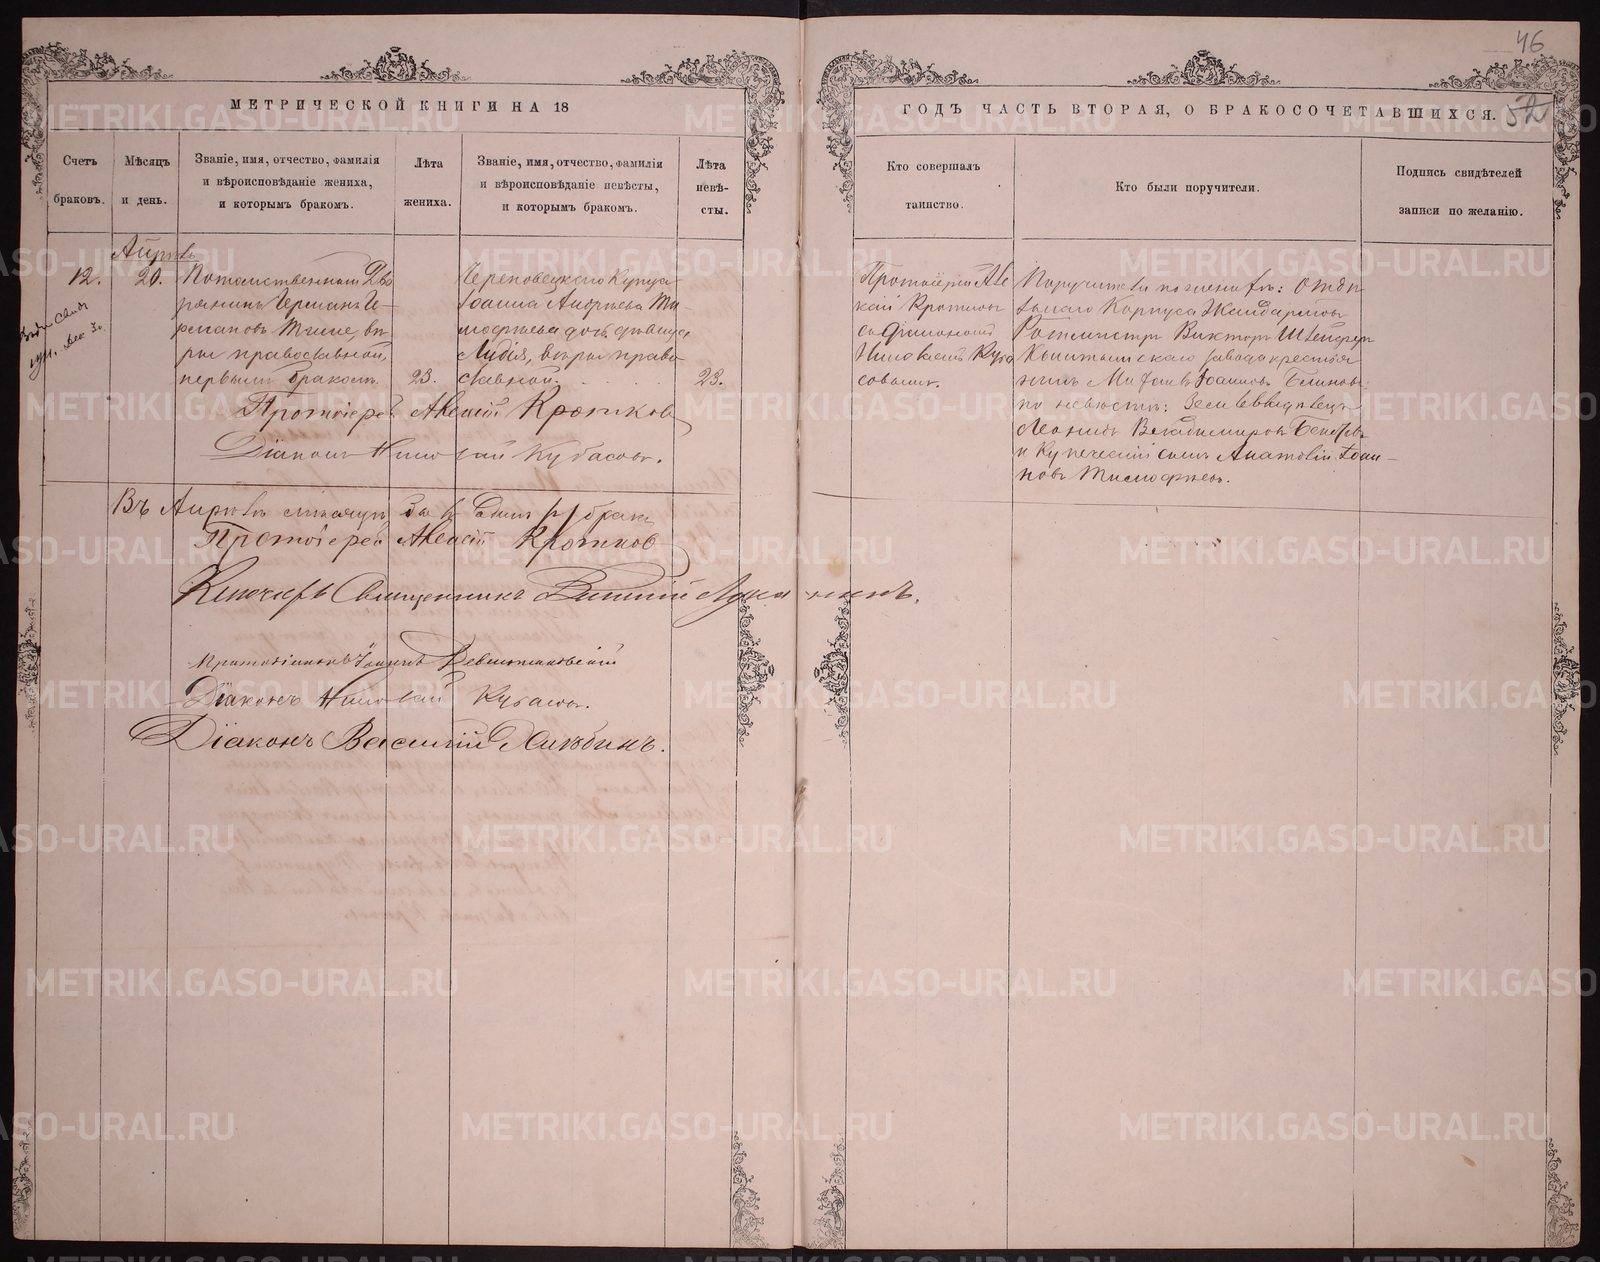 46
МЕТРИЧЕСКОЙ КНИГИ НА 18
ГОДЪ ЧАСТЬ ВТОРАЯ, О БРАКОСОЧЕТАВШИХСЯ.
52
Счетъ браковъ.
Мѣсяцъ и день.
Званіе, имя, отчество, фамилія
и вѣроисповѣданіе жениха,
и которымъ бракомъ.
Лѣта жениха.
Званіе, имя, отчество, фамилія
и вѣроисповѣданіе невѣсты,
и которымъ бракомъ.
Лѣта невѣ-
сты.
Кто совершалъ
таинство.
Кто были поручители.
Подпись свидѣтелей
записи по желанію.
Апрѣль
12.
20.
Потомственный Дво
рянинъ Германъ Ге-
рмановъ Тиме, вѣ
ры православной,
первымъ бракомъ.
23.
Череповецкаго Купца
Іоанна Андреева Ти
мофѣева дочь дѣвица
Лидія, вѣры право
славной.
23.
Протоіерей Але
ксій Кротковъ
съ Діакономъ
Николаемъ Куба
совымъ.
Поручители по женихѣ: Отдѣ
льнаго Корпуса Жандармовъ
Ротмистръ Викторъ
Кыштымскаго завода крестья
нинъ Іоанновъ Блиновъ
по невѣстѣ: Землевладѣлецъ
Леонидъ Владимировъ
и Купеческій сынъ Анатолій Іоан-
новъ Тимофѣевъ.
Протоіерей Алексій Кротковъ
Діаконъ Николай Кубасовъ.
Въ Апрѣлѣ мѣсяцѣ былъ Одинъ (1) бракъ
Протоіерей Алексій Кротковъ
Ключарь Священникъ
Діаконъ Николай Кубасовъ.
Діаконъ Василій Хлѣбинъ.
METRIKI.GASO-URAL.RU